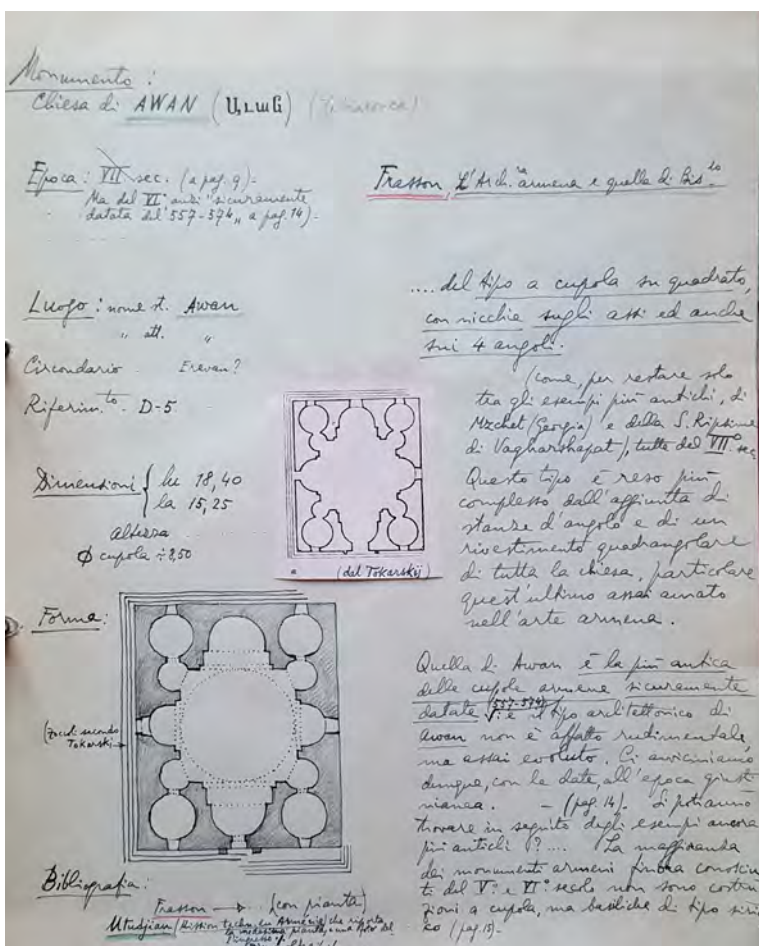 Monumento :
Chiesa di AWAN (Աւան)
Epoca : VII sec. (a pag. 9) -
Ma del VI° anzi "sicuramente
datata del 557-574„ a pag. 14) -
Luogo : nome st. Awan
" att. "
Circondario Erevan?
Riferim.to D-5
Dimensioni { lu 18,40
la 15,25
altezza
Ø cupola ÷ 8,50
Forma :
(zoccoli secondo
Tokarski)
a (dal Tokarskij)
Bibliografia :
Frasson (con pianta)
Utudjian (Mission techn. en Arménie) che riporta
la medesima pianta, e una foto del
Frasson, L'Arch.ra armena e quella di Bis.to
.... del tipo a cupola su quadrato,
con nicchie sugli assi ed anche
sui 4 angoli.
(come, per restare solo
tra gli esempi più antichi, di
Mzchet (Georgia) e della S. Ripsime
di Vagharshapat), tutte del VII° sec
Questo tipo è reso più
complesso dall'aggiunta di
stanze d'angolo e di un
rivestimento quadrangolare
di tutta la chiesa, particolare
quest'ultimo assai amato
nell'arte armena.
Quella di Awan è la più antica
delle cupole armene sicuramente
datate (557-574) : e il tipo architettonico di
Awan non è affatto rudimentale,
ma assai evoluto. Ci avviciniamo
dunque, con le date, all'epoca giusti
nianea. - (pag. 14). Si potranno
trovare in seguito degli esempi ancora
più antichi ?.... La maggioranza
dei monumenti armeni finora conosciu
ti del V° e VI° secolo non sono costru
zioni a cupola, ma basiliche di tipo siria
co (pag. 15) -